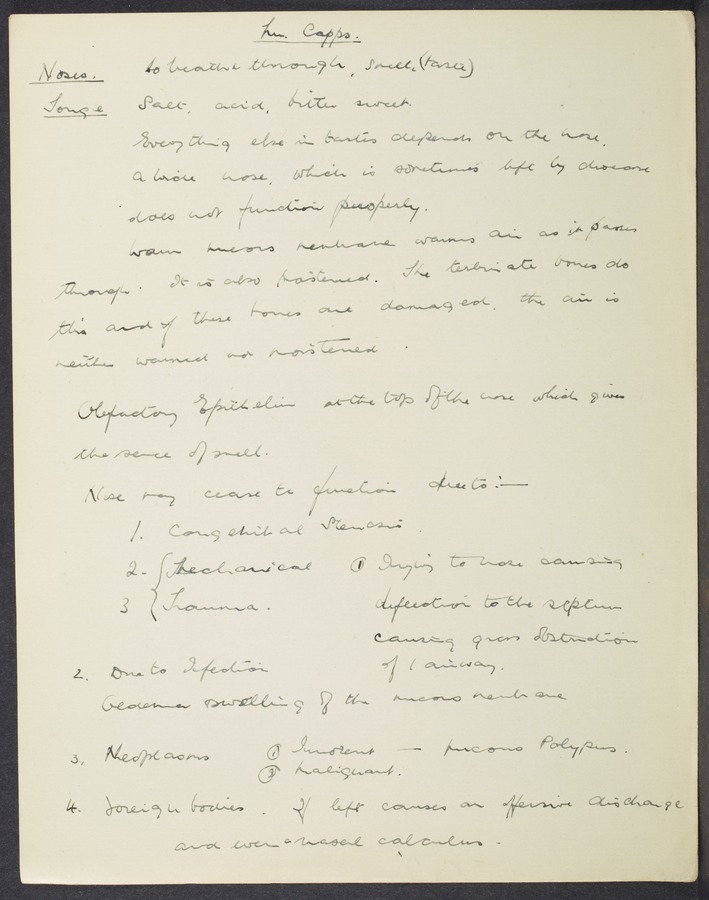 Mr. Capps.
Noses. to breathe through, smell, (taste)
Tongue Salt, acid, bitter sweet.
Everything else in tastes depends on the nose.
a wide nose, which is sometimes left by disease
does not function properly.
Warm mucous membrane warms air as it passes
through. It is also moistened. The terbinate bones do
this and if these bones are damaged, the air is
neither warmed nor moistened.
Olefactory Epithelium at the top of the nose which gives
the sense of smell.
Nose may cease to function due to:—
1. Congenital Stenosis.
2. { Mechanical ① Injury to nose causing
3 { Trauma. deflection to the septum
causing gross obstruction
of 1 airway.
2. Due to Infection
Oedema swelling of the mucous membrane
3. Neoplasms ① Innocent — mucous Polypus.
② Malignant.
4. Foreign bodies. If left causes an offensive discharge
and even a nasal calculus.